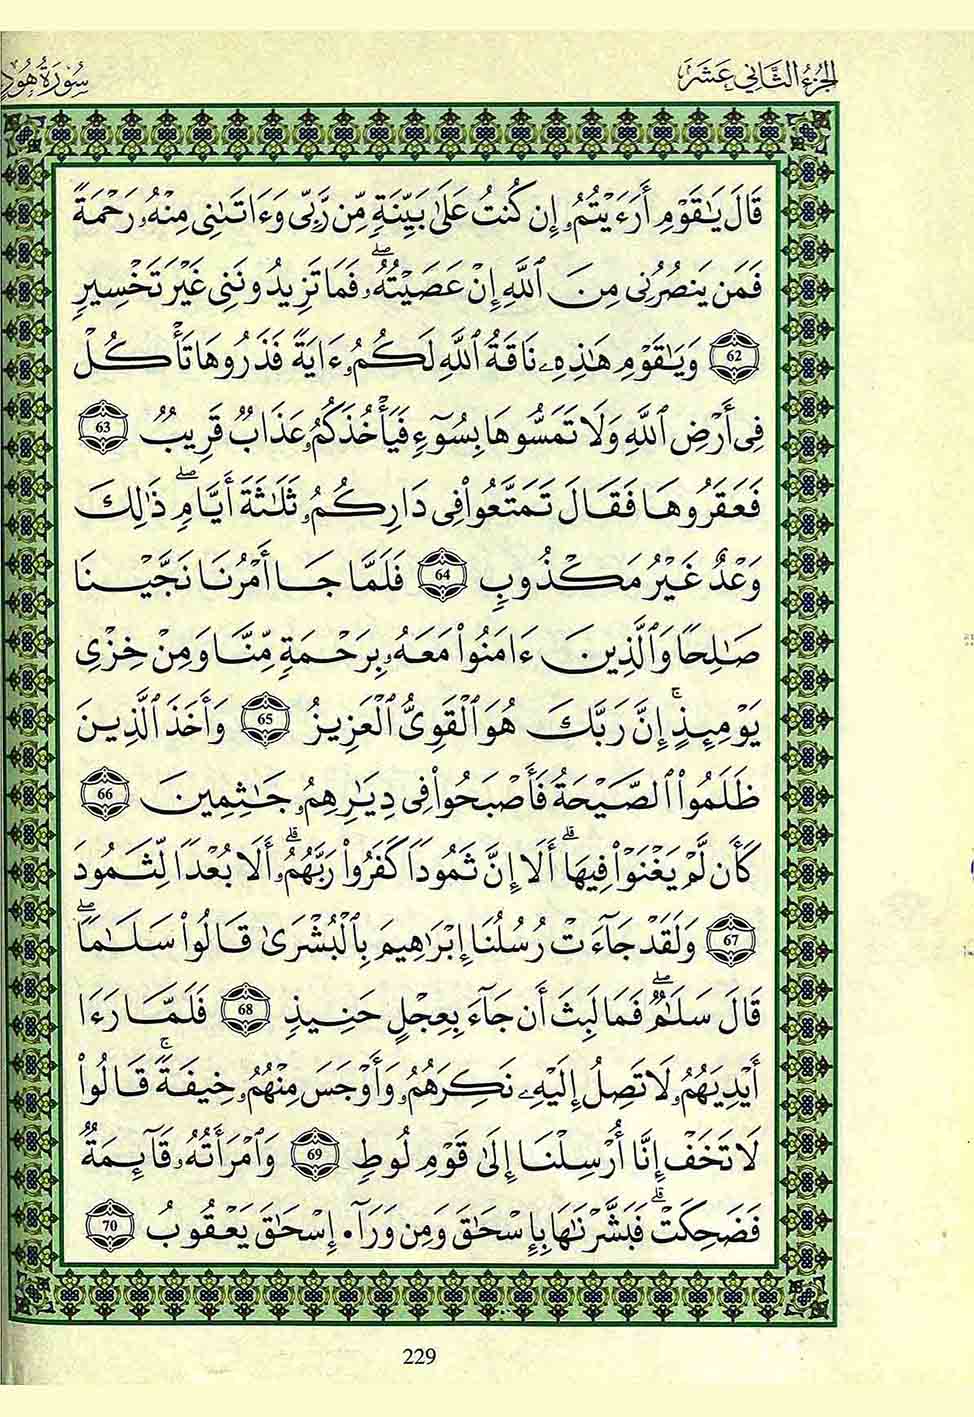 الجزء الثاني عشر
سورة هود
قَالَ يَٰقَوْمِ أَرَءَيْتُمُۥ إِن كُنتُ عَلَىٰ بَيِّنَةٍ مِّن رَّبِّى وَءَاتَىٰنِى مِنْهُۥ رَحْمَةً
فَمَن يَنصُرُنِى مِنَ ٱللَّهِ إِنْ عَصَيْتُهُۥ ۖ فَمَا تَزِيدُونَنِى غَيْرَ تَخْسِيرٍ
62 وَيَٰقَوْمِ هَٰذِهِۦ نَاقَةُ ٱللَّهِ لَكُمُۥ ءَايَةً فَذَرُوهَا تَأْكُلْ
فِى أَرْضِ ٱللَّهِ وَلَا تَمَسُّوهَا بِسُوٓءٍ فَيَأْخُذَكُمُۥ عَذَابٌ قَرِيبٌ 63
فَعَقَرُوهَا فَقَالَ تَمَتَّعُوا۟ فِى دَارِكُمُۥ ثَلَٰثَةَ أَيَّامٍ ۖ ذَٰلِكَ
وَعْدٌ غَيْرُ مَكْذُوبٍ 64 فَلَمَّا جَا أَمْرُنَا نَجَّيْنَا
صَٰلِحًا وَٱلَّذِينَ ءَامَنُوا۟ مَعَهُۥ بِرَحْمَةٍ مِّنَّا وَمِنْ خِزْىِ
يَوْمِئِذٍ ۚ إِنَّ رَبَّكَ هُوَ ٱلْقَوِىُّ ٱلْعَزِيزُ 65 وَأَخَذَ ٱلَّذِينَ
ظَلَمُوا۟ ٱلصَّيْحَةُ فَأَصْبَحُوا۟ فِى دِيَٰرِهِمُۥ جَٰثِمِينَ 66
كَأَن لَّمْ يَغْنَوْا۟ فِيهَا ۗ أَلَا إِنَّ ثَمُودًا كَفَرُوا۟ رَبَّهُمُۥ ۗ أَلَا بُعْدًا لِّثَمُودَ
67 وَلَقَدْ جَآءَتْ رُسُلُنَا إِبْرَٰهِيمَ بِٱلْبُشْرَىٰ قَالُوا۟ سَلَٰمًا ۖ
قَالَ سَلَٰمٌ ۖ فَمَا لَبِثَ أَن جَآءَ بِعِجْلٍ حَنِيذٍ 68 فَلَمَّا رَءَا
أَيْدِيَهُمُۥ لَا تَصِلُ إِلَيْهِۦ نَكِرَهُمُۥ وَأَوْجَسَ مِنْهُمُۥ خِيفَةً ۚ قَالُوا۟
لَا تَخَفْ إِنَّا أُرْسِلْنَا إِلَىٰ قَوْمِ لُوطٍ 69 وَٱمْرَأَتُهُۥ قَآئِمَةٌ
فَضَحِكَتْ ۗ فَبَشَّرْنَٰهَا بِإِسْحَٰقَ وَمِن وَرَآءِ إِسْحَٰقَ يَعْقُوبُ 70
229